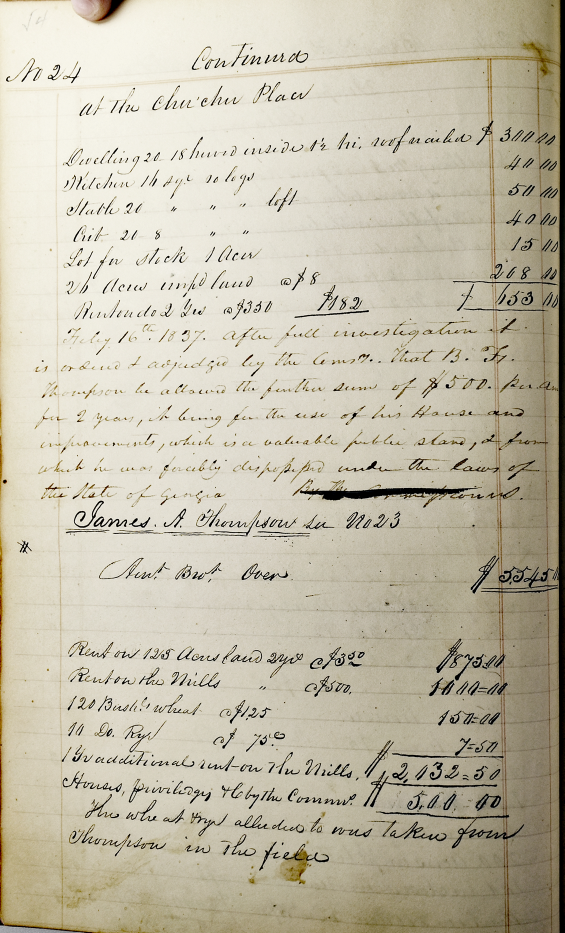 No 24 Continued
at the Chu'chu Place
Dwelling 20 - 18 hewed inside 1½ hi. roof nailed $ 300 00
Kitchen 16 sqr 10 logs 40 00
Stable 20 " " " loft 50 00
Crib 20 - 8 " " 40 00
Lot for stock 1 Acer 15 00
26 Acers imp'd land @ $8 208 00
Rent on do 2 yrs @ $350 $182 $ 653 00
Feb'y 16th. 1837. After full investigation it
is ordered & adjudged by the Coms'rs. that B. F.
Thompson be allowed the further sum of $500. per an
for 2 years, it being for the use of his House and
improvements, which is a valuable public stand, & from
which he was forcibly dispossessed under the laws of
the State of Georgia
James. A. Thompson see No 23
Amt. Brot. Over $ 5545
Rent on 125 Acres land 2 yrs @ $3.50 $875.00
Rent on the Mills " @ $500. 1000=00
120 Bush'ls wheat @ $1.25 150=00
10 Do. Rye @ $ 75c 7=50
1 Yr additional rent on the Mills, $ 2,032=50
Houses, priviledges &c by the Commrs. $ 500=00
The wheat & rye alluded to was taken from
Thompson in the field